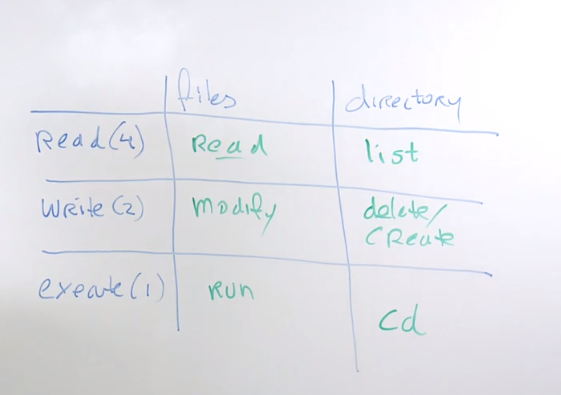 files directory
Read(4) Read list
Write(2) Modify delete/
CReate
execute(1) RUN cd